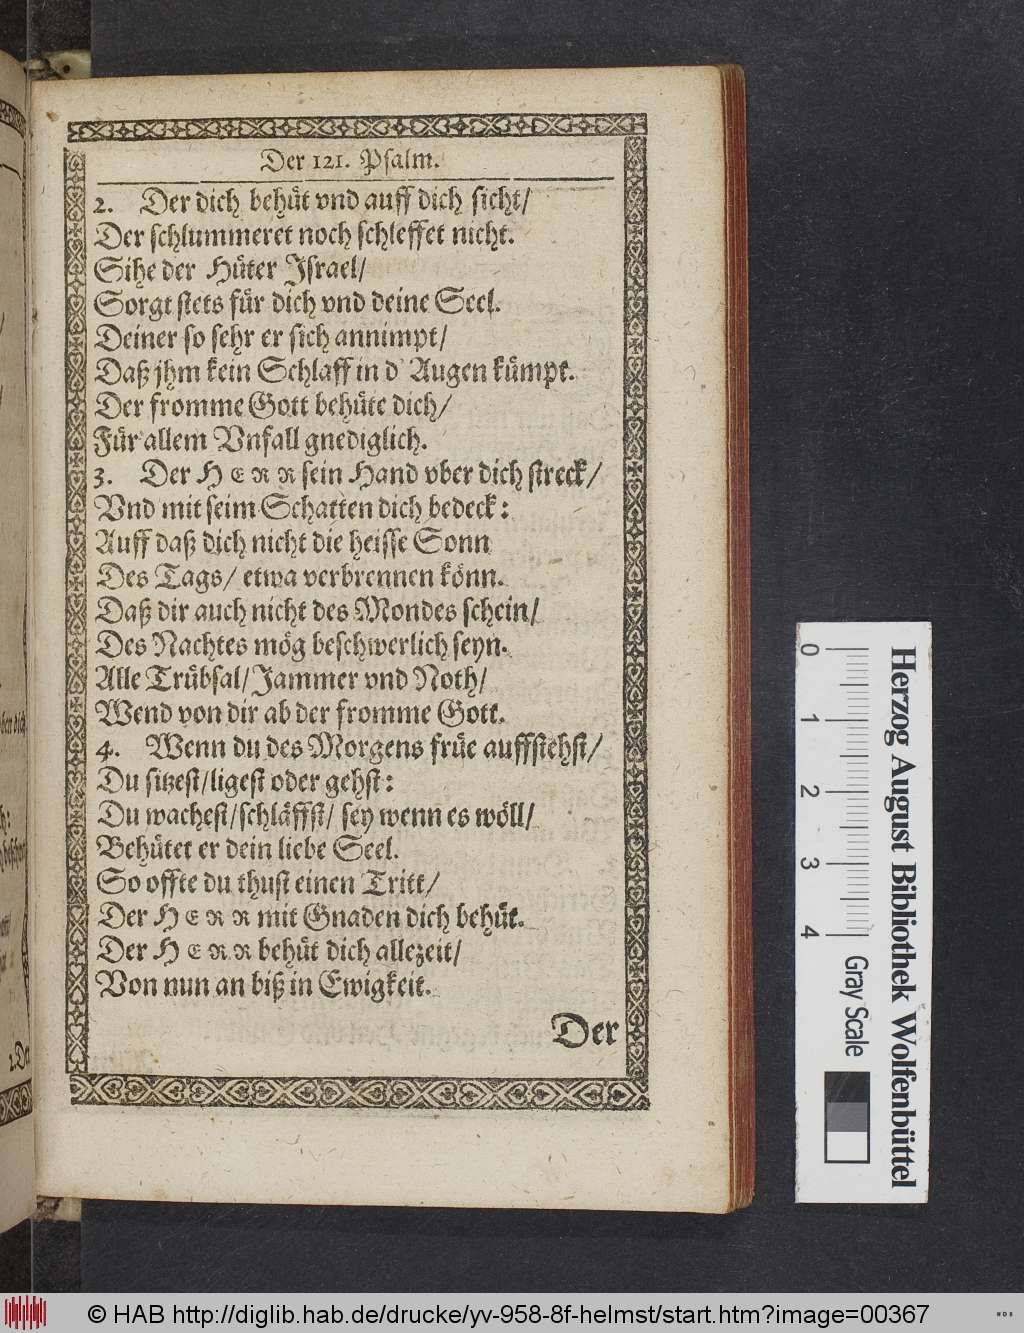 Der 121. Psalm.
2. Der dich behüt vnd auff dich sicht/
Der schlummeret noch schleffet nicht.
Sihe der Hüter Israel/
Sorgt stets für dich vnd deine Seel.
Deiner so sehr er sich annimpt/
Daß jhm kein Schlaff in d' Augen kümpt.
Der fromme Gott behüte dich/
Für allem Vnfall gnediglich.
3. Der HERR sein Hand vber dich streck/
Vnd mit seim Schatten dich bedeck:
Auff daß dich nicht die heisse Sonn
Des Tags/ etwa verbrennen könn.
Daß dir auch nicht des Mondes schein/
Des Nachtes mög beschwerlich seyn.
Alle Trübsal/Jammer vnd Noth/
Wend von dir ab der fromme Gott.
4. Wenn du des Morgens früe auffstehst/
Du sitzest/ligest oder gehst:
Du wachest/schläffst/ sey wenn es wöll/
Behütet er dein liebe Seel.
So offte du thust einen Tritt/
Der HERR mit Gnaden dich behüt.
Der HERR behüt dich allezeit/
Von nun an biß in Ewigkeit.
Der
2.De
0 1 2 3 4
Gray Scale
Herzog August Bibliothek Wolfenbüttel
© HAB http://diglib.hab.de/drucke/yv-958-8f-helmst/start.htm?image=00367